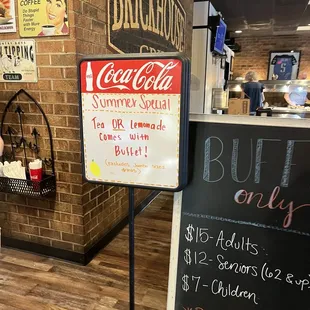 COFFEE
Do Stupid
Faster
TIPPING
TEAM
BRICKHOUSE
Coca-Cola
Summer Special
Tea OR Lemonade
Comes with
Buffet!
BUFF
only
$15- Adults
$12- Seniors (62 & up)
$7- Children